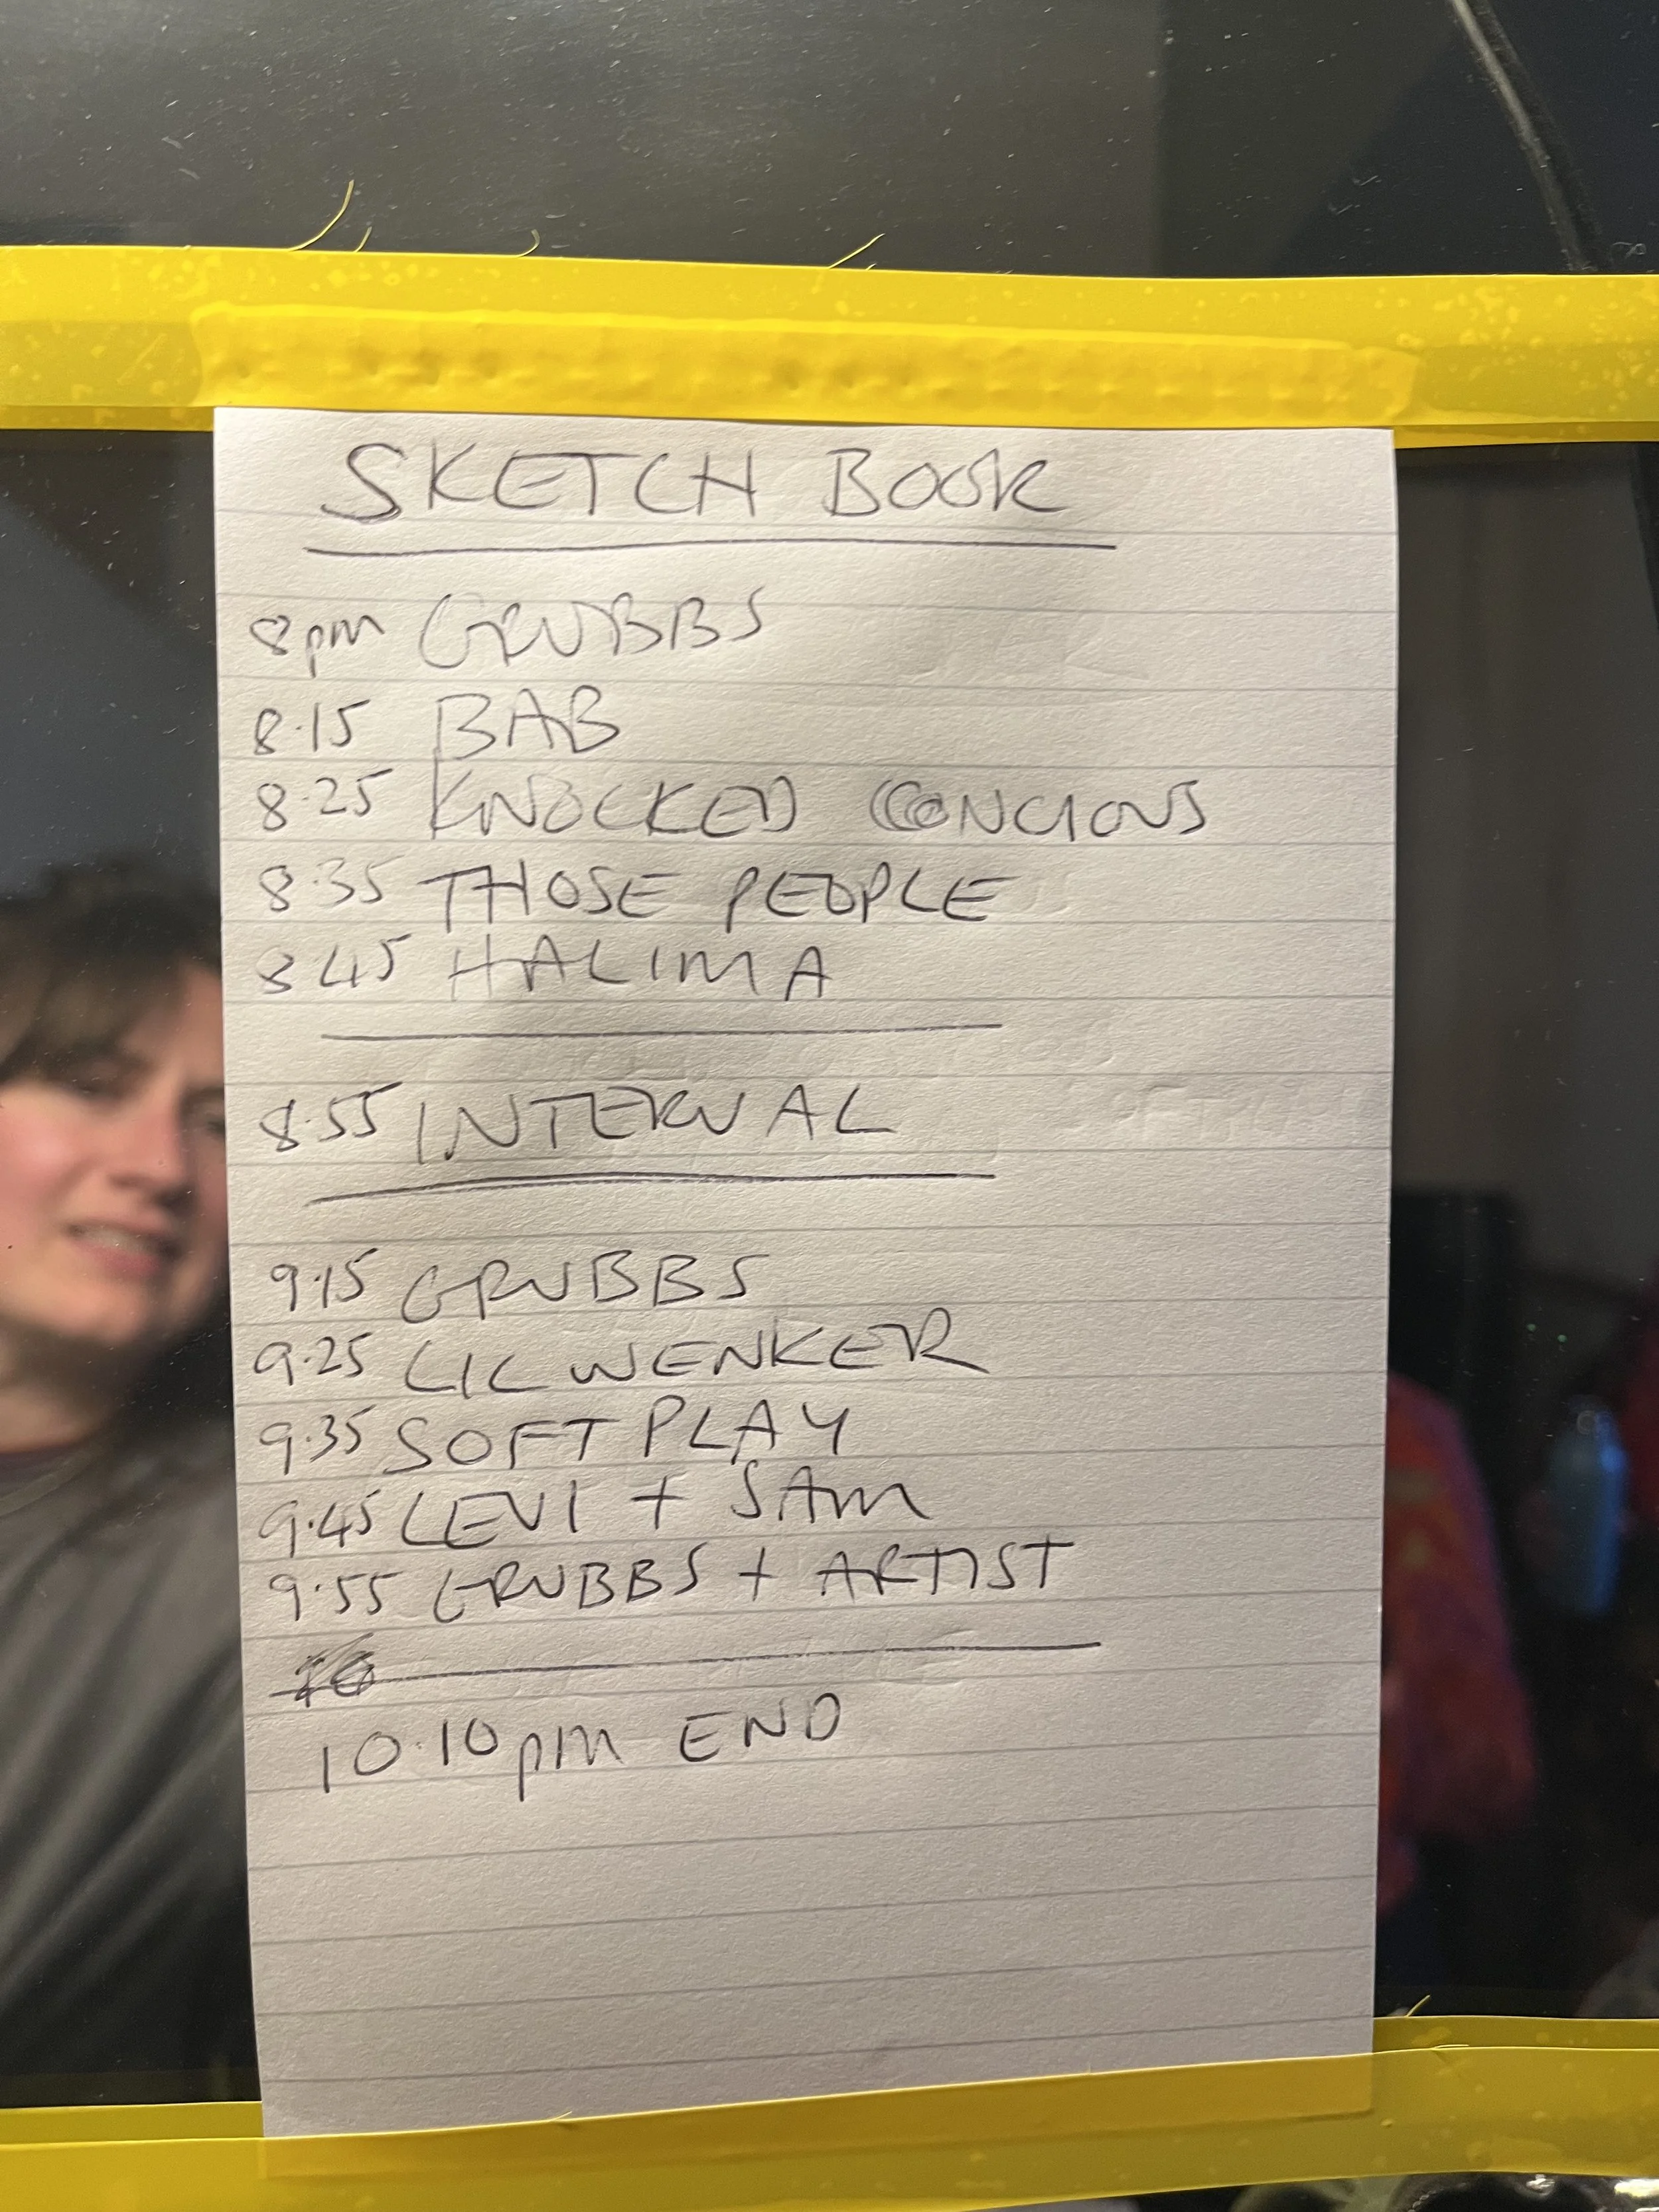 SKETCH BOOK
8pm GRUBBS
8.15 BAB
8.25 KNOCKED CONCIOUS
8.35 THOSE PEOPLE
8.45 HALIMA
8.55 INTERVAL
9.15 GRUBBS
9.25 LIL WENKER
9.35 SOFT PLAY
9.45 LEVI + SAM
9.55 GRUBBS + ARTIST
10.10pm END